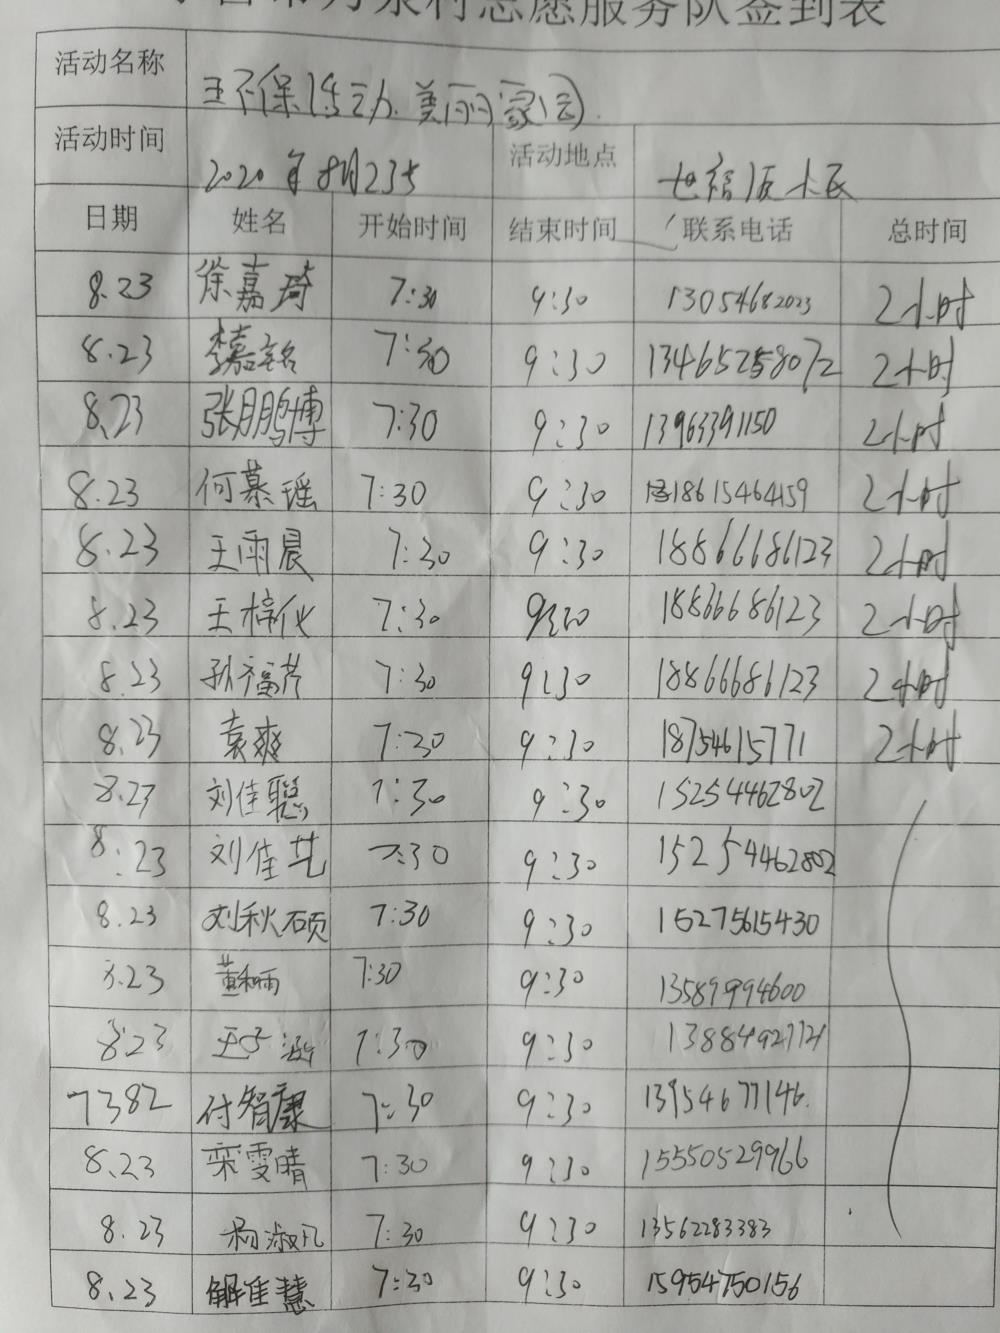 志愿服务队签到表
活动名称 环保活动.美丽家园.
活动时间 2020年8月23号 活动地点
日期 姓名 开始时间 结束时间 联系电话 总时间
8.23 徐嘉琦 7:30 9:30 13054682023 2小时
8.23 7:30 9:30 13465258072 2小时
8.23 张鹏博 7:30 9:30 13963391150 2小时
8.23 何慕瑶 7:30 9:30 18615464159 2小时
8.23 王雨晨 7:30 9:30 18866686123 2小时
8.23 王梓化 7:30 9:30 18866686123 2小时
8.23 孙福芹 7:30 9:30 18866686123 2小时
8.23 袁爽 7:30 9:30 18754615771 2小时
8.23 刘佳聪 7:30 9:30 15254462802
8.23 刘佳艺 7:30 9:30 15254462802
8.23 刘秋硕 7:30 9:30 15275615430
8.23 7:30 9:30 13589994600
8.23 7:30 9:30 13884927121
7382 付智康 7:30 9:30 13954677146.
8.23 栾雯晴 7:30 9:30 15550529966
8.23 杨淑凡 7:30 9:30 13562283383
8.23 解佳慧 7:30 9:30 15954750156